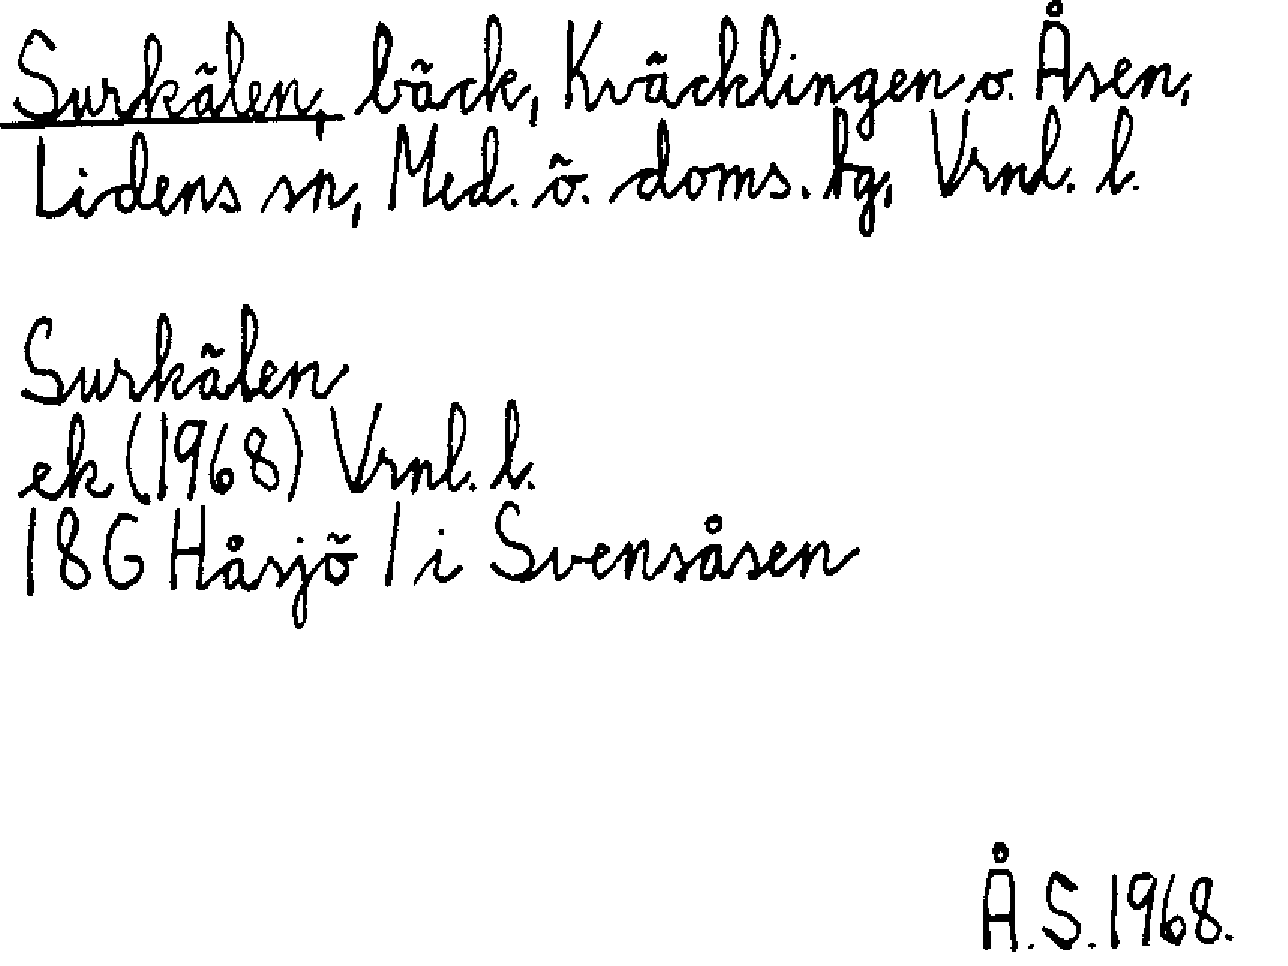 Surkälen, bäck, Kväcklingen o. Åsen,
Lidens sn, Med. ö. doms. tg, Vrnl. l.
Surkälen
ek (1968) Vrnl. l.
18G Håsjö 1 i Svensåsen
Å.S. 1968.